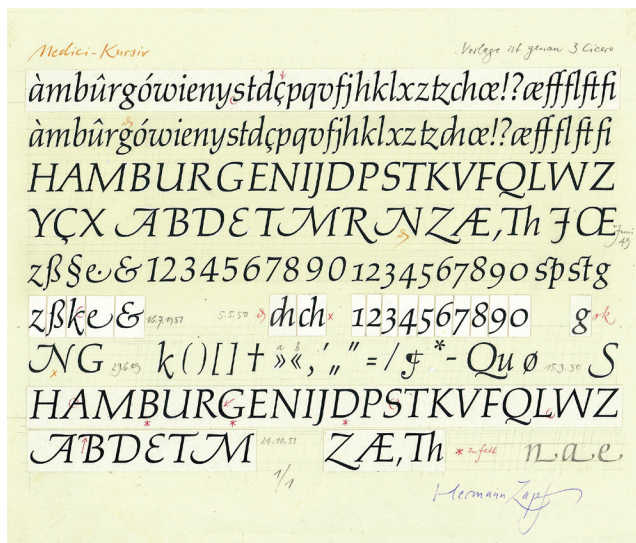 Medici-Kursiv
Vorlage ist genau 3 Cicero
àmbûrgówienystdçpqvfjhklxztzchœ!?æffflftfi
àmbûrgówienystdçpqvfjhklxztzchœ!?æffflftfi
HAMBURGENIJDPSTKVFQLWZ
YÇX ABDƐTMRNZÆ,Th JŒ
Juni 49
zß§e&1234567890 1234567890 spstg
zßke& 16.7.1951 5.5.50 dhch x 1234567890 g ok
NG 29.6.49 k()[]† »«,‘„” =/ *- Qu ø 15.3.50 S
a b
HAMBURGENIJDPSTKVFQLWZ
ABDƐTM 24.10.51 ZÆ,Th * zu fett n a e
1/1
Hermann Zapf